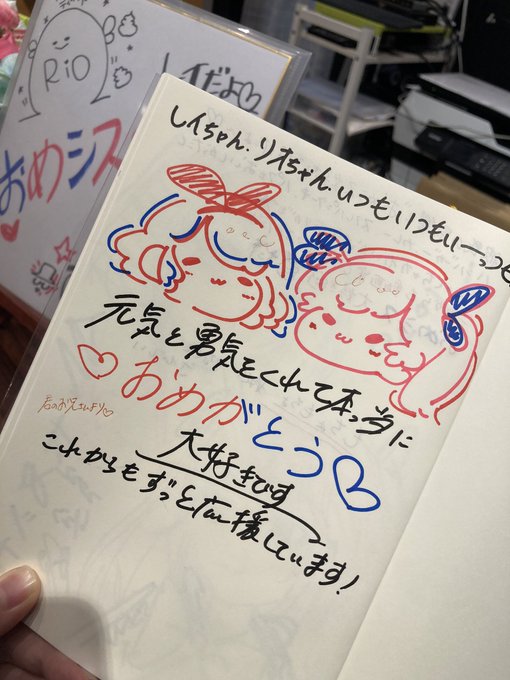 RiO
レイだよ♡
おめシス
レイちゃん、リオちゃん、いつもいつもいーっつも
元気と勇気をくれて本当に
♡おめがとう♡
君のお兄さんより♡
大好きです
これからもずっと応援しています!